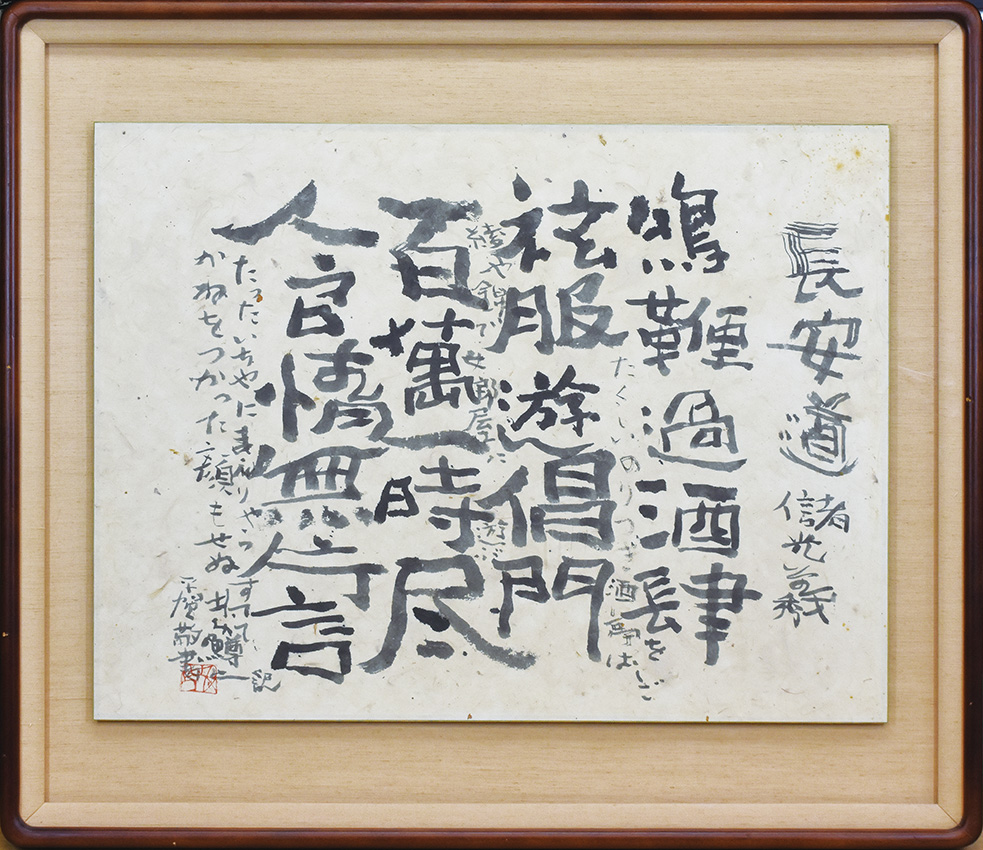 長安道 儲光羲
鳴鞭過酒肆
袨服遊倡門
百萬一時尽
含情無片言
たくしいのりつぎ酒場をはしご
綾や錦で女郎屋に遊ぶ
たったいちやにまんりやうすてて
かねをつかった顔もせぬ
井伏鱒二 訳
平賀敬書